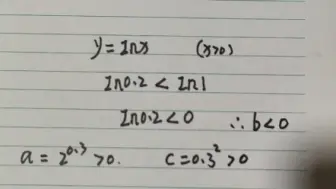 y = lnx (x>0)
ln0.2 < ln1
ln0.2 < 0 ∴ b<0
a = 2^0.3 >0. c = 0.3^2 >0